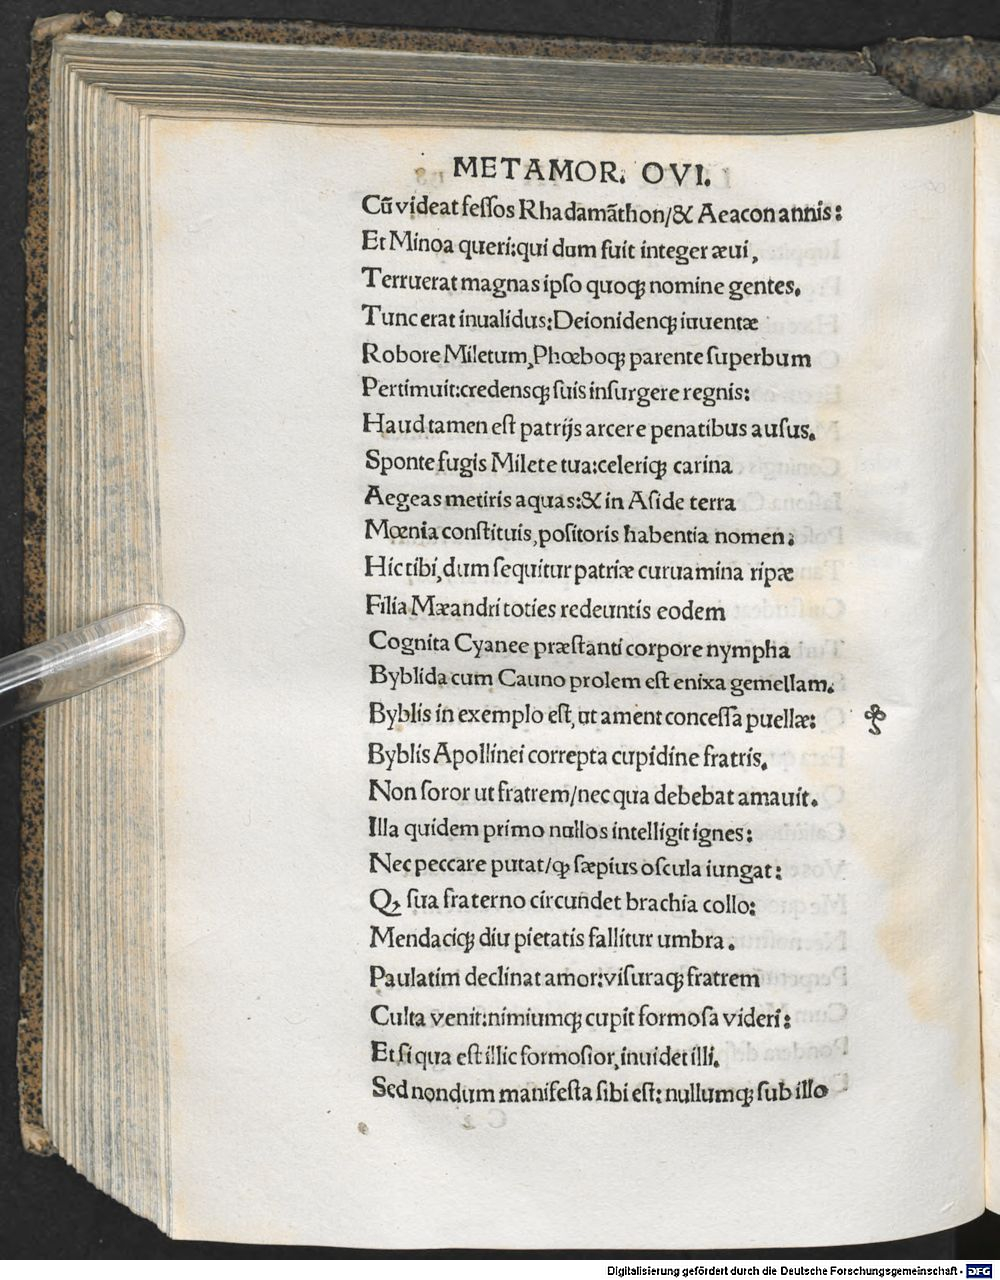 METAMOR. OVI.
Cū videat feſſos Rhadamāthon/& Aeacon annis:
Et Minoa queri:qui dum fuit integer æui,
Terruerat magnas ipſo quoqꝫ nomine gentes.
Tunc erat inualidus:Deionidenqꝫ iuuentæ
Robore Miletum,Phœboqꝫ parente ſuperbum
Pertimuit:credensqꝫ ſuis inſurgere regnis:
Haud tamen eſt patrijs arcere penatibus auſus.
Sponte fugis Milete tua:celeriqꝫ carina
Aegeas metiris aquas:& in Aſide terra
Mœnia conſtituis,poſitoris habentia nomen:
Hic tibi,dum ſequitur patriæ curuamina ripæ
Filia Mæandri toties redeuntis eodem
Cognita Cyanee præſtanti corpore nympha
Byblida cum Cauno prolem eſt enixa gemellam.
Byblis in exemplo eſt,ut ament conceſſa puellæ:
Byblis Apollinei correpta cupidine fratris.
Non ſoror ut fratrem/nec qua debebat amauit.
Illa quidem primo nullos intelligit ignes:
Nec peccare putat/ꝙ ſæpius oſcula iungat:
Qꝫ ſua fraterno circūdet brachia collo:
Mendaciqꝫ diu pietatis fallitur umbra.
Paulatim declinat amor:uiſuraqꝫ fratrem
Culta venit:nimiumqꝫ cupit formoſa videri:
Et ſi qua eſt illic formoſior,inuidet illi.
Sed nondum manifeſta ſibi eſt:nullumqꝫ ſub illo
Digitalisierung gefördert durch die Deutsche Forschungsgemeinschaft - DFG